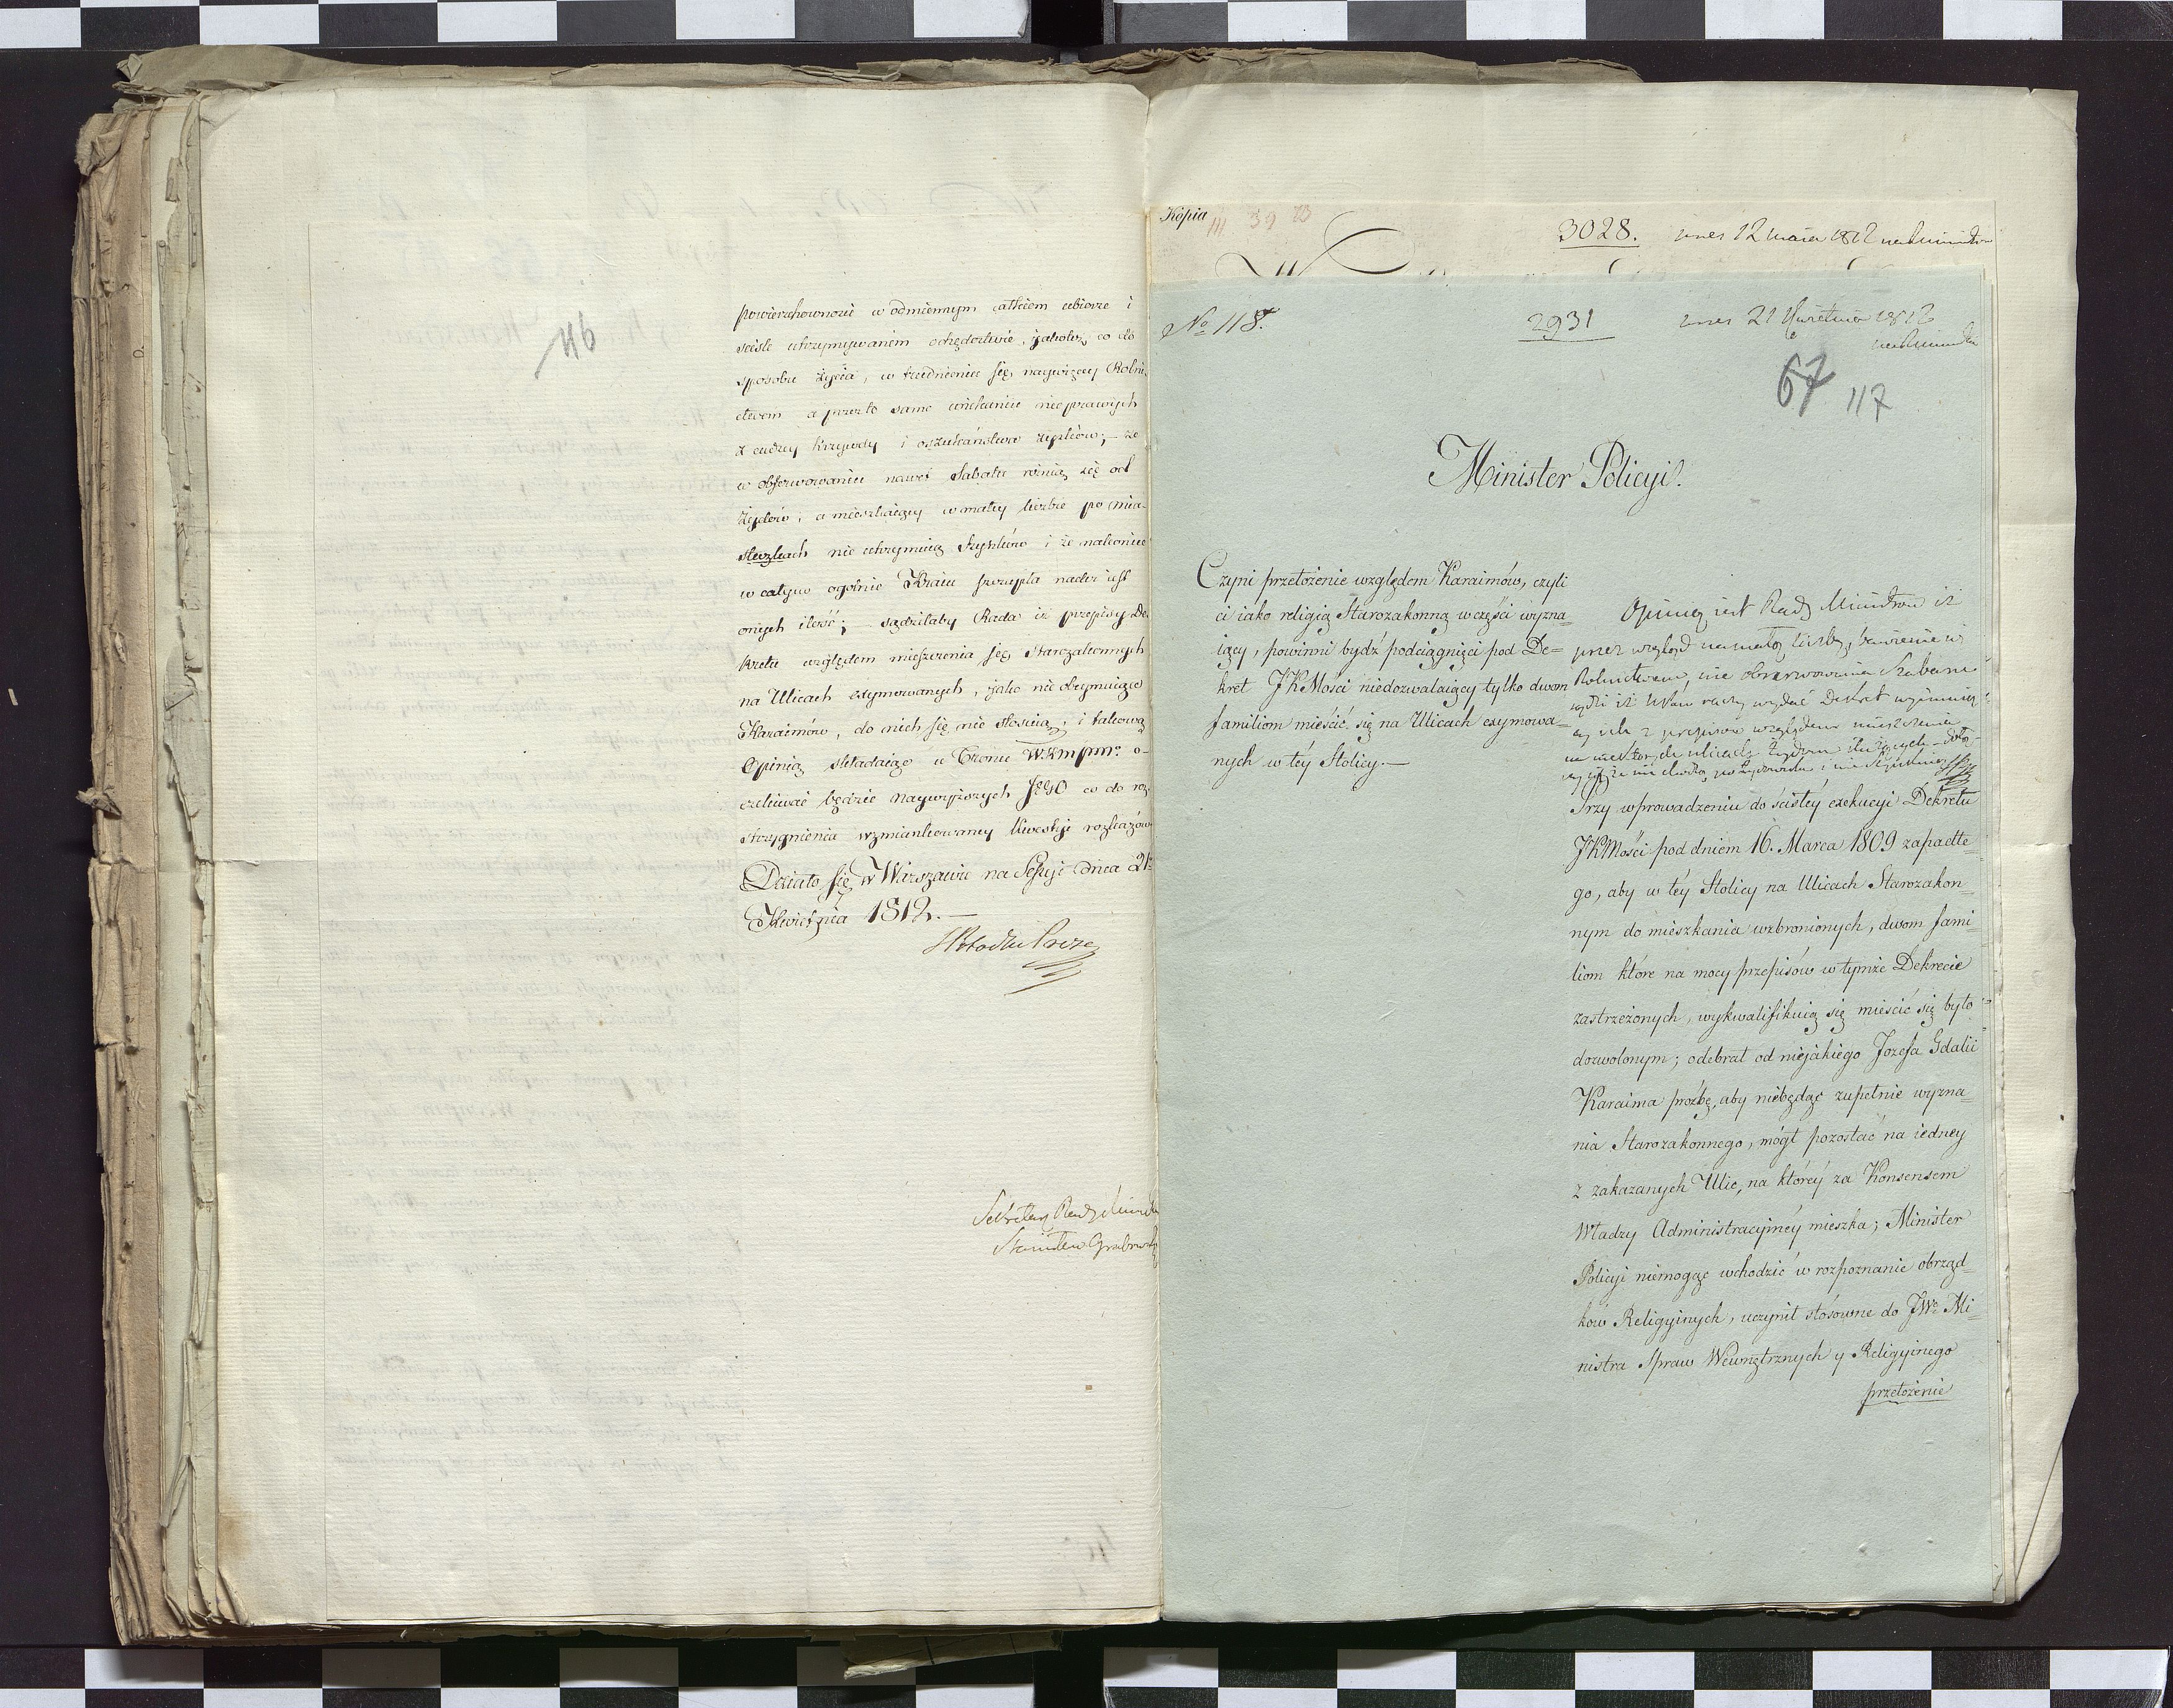 116
powierzchowności w odmiennym całkiem ubiorze i
ściśle utrzymywaniem ochędostwie, jakoteż co do
sposobu życia, w trudnieniu się naywięcey Rolni-
ctwem a przez to samo unikaniu nieprawych
z cudzey krzywdy i oszukaństwa zysków; – że
w obserwowaniu nawet Sabatu rożnią się od
Żydów; a mieszkaiący w małey liczbie po mia-
steczkach nie utrzymuią Szynków i że nakoniec
w całym ogolnie Kraiu szczupła nader iest
onych ilość; – sądziłaby Rada iż przepisy De-
kretu względem mieszczenia się Starozakonnych
na Ulicach exymowanych, jako nie obeymuiące
Karaimów, do nich się nie stosuią, i takową
Opinią składaiąc u Tronu WKMPM: o-
czekiwać będzie naywyższych Jego co do roz-
strzygnienia wzmiankowaney kwestyi rozkazów
Działo się w Warszawie na Sessyi dnia 21
Kwietnia 1812. –
Sekretarz Rady Ministrów
Stanisław Grabowski
Kopia
III 39 B
3028. wnes 12 maia 1812
No 118.
2931 wnes 21 Kwietnia 1812
67 117
Minister Policyi.
Czyni przełożenie względem Karaimów, czyli
ci iako religią Starozakonną w części wyzna=
iący, powinni bydź podciągnięci pod De=
kret JKMości niedozwalaiący tylko dwom
familiom mieścić się na Ulicach exymowa=
nych w téy Stolicy. –
Opinią iest Rady Ministrów iż
przez wzgląd na małą liczbę, bawienie się
Rolnictwem, nie obserwowania Szabasu
wydać Dekret
z przepisów względem mieszczenia
Przy wprowadzeniu do ścisłéy exekucyi Dekretu
JKMości pod dniem 16. Marca 1809 zapadłe=
go, aby w téy Stolicy na Ulicach Starozakon=
nym do mieszkania wzbronionych, dwom fami=
liom które na mocy przepisów w tymże Dekrecie
zastrzeżonych, wykwalifikuią się mieścić się było
dozwolonym; odebrał od niejakiego Jozefa Gdalii
Karaima prożbę, aby niebędąc zupełnie wyzna=
nia Starozakonnego, mógł pozostać na iedney
z zakazanych Ulic, na któréy za Konsensem
Władzy Administracyinéy mieszka; Minister
Policyi niemogąc wchodzić w rozpoznanie obrząd=
ków Religyinych, uczynił stosowne do JWo Mi=
nistra Spraw Wewnętrznych y Religyinego
przełożenie